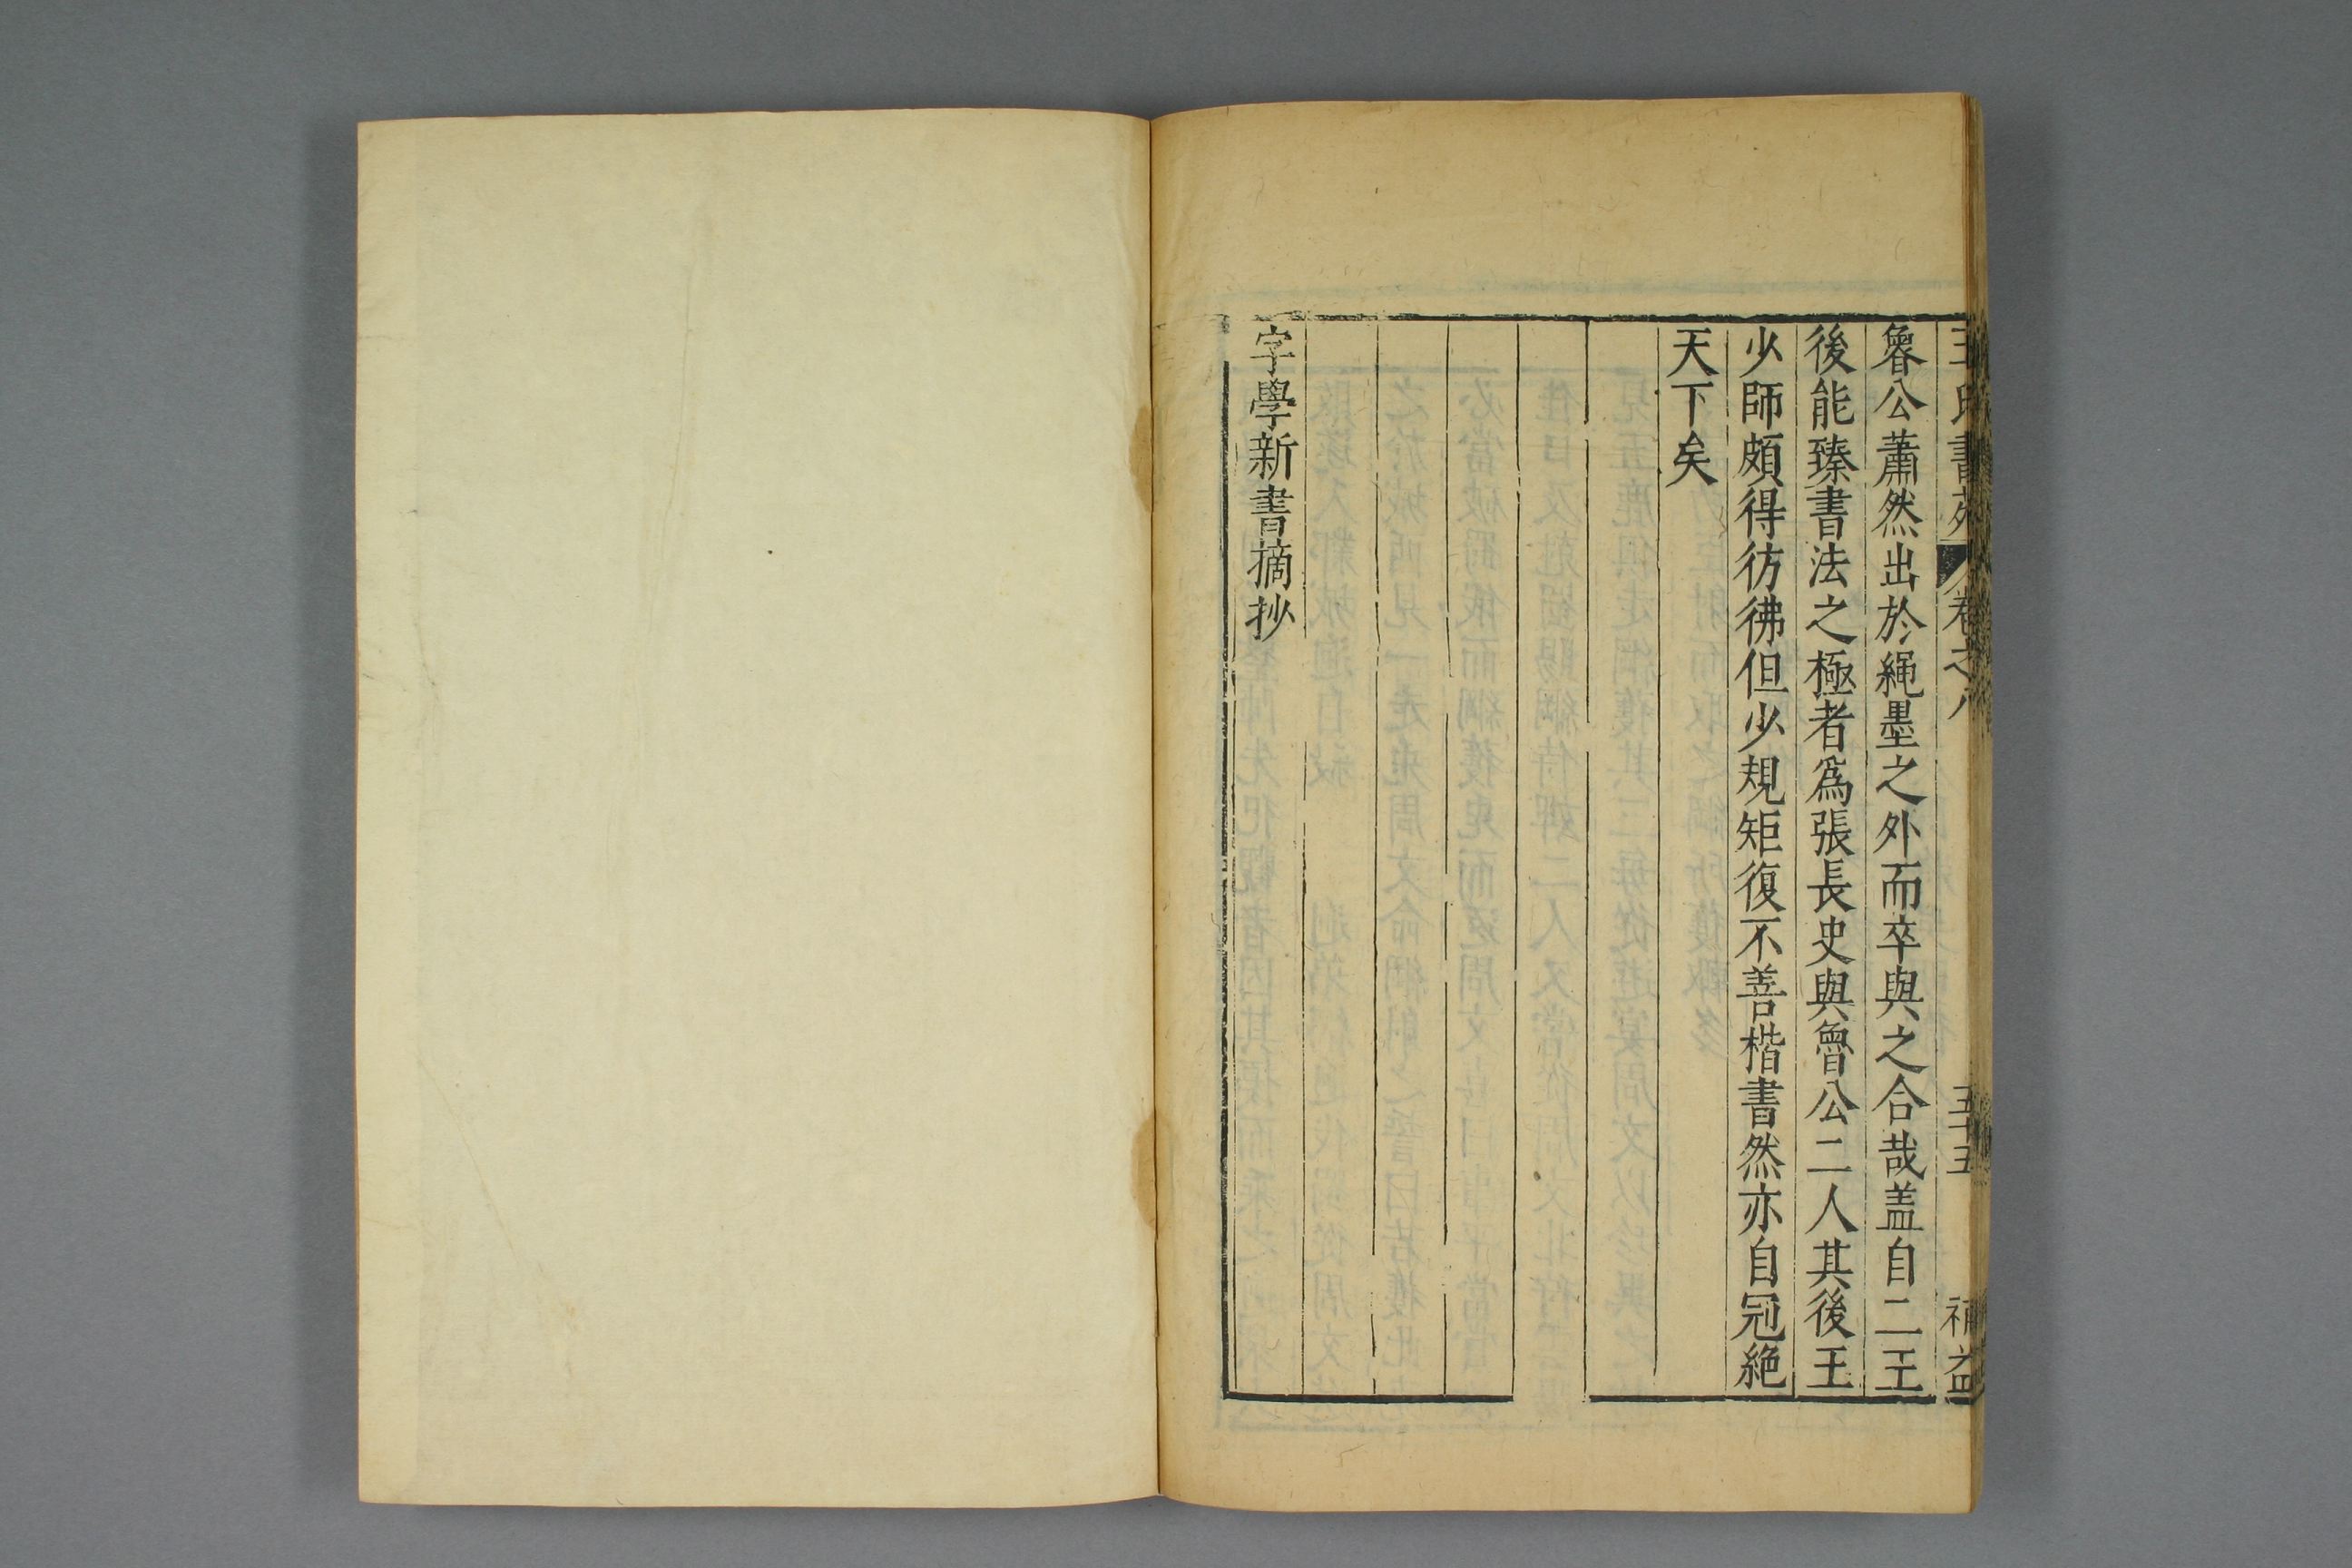 王氏書苑 卷之八 五十五 補益
魯公蕭然出於繩墨之外而卒與之合哉盖自二王
後能臻書法之極者爲張長史與魯公二人其後王
少師頗得彷彿但少規矩復不善楷書然亦自冠絶
天下矣
字學新書摘抄